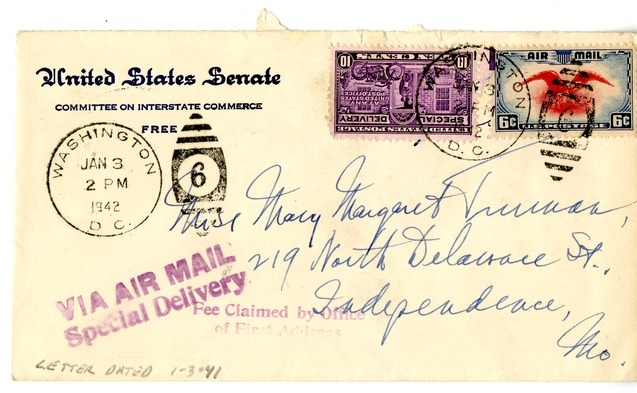 United States Senate
COMMITTEE ON INTERSTATE COMMERCE
FREE
WASHINGTON
JAN 3
2 PM
1942
D.C.
6
10 10
SPECIAL DELIVERY
WASHINGTON
D.C.
AIR MAIL
6c 6c
Miss Mary Margaret Truman,
219 North Delaware St.,
Independence,
Mo.
VIA AIR MAIL
Special Delivery
Fee Claimed by Office
of First Address
LETTER DATED 1-3-41